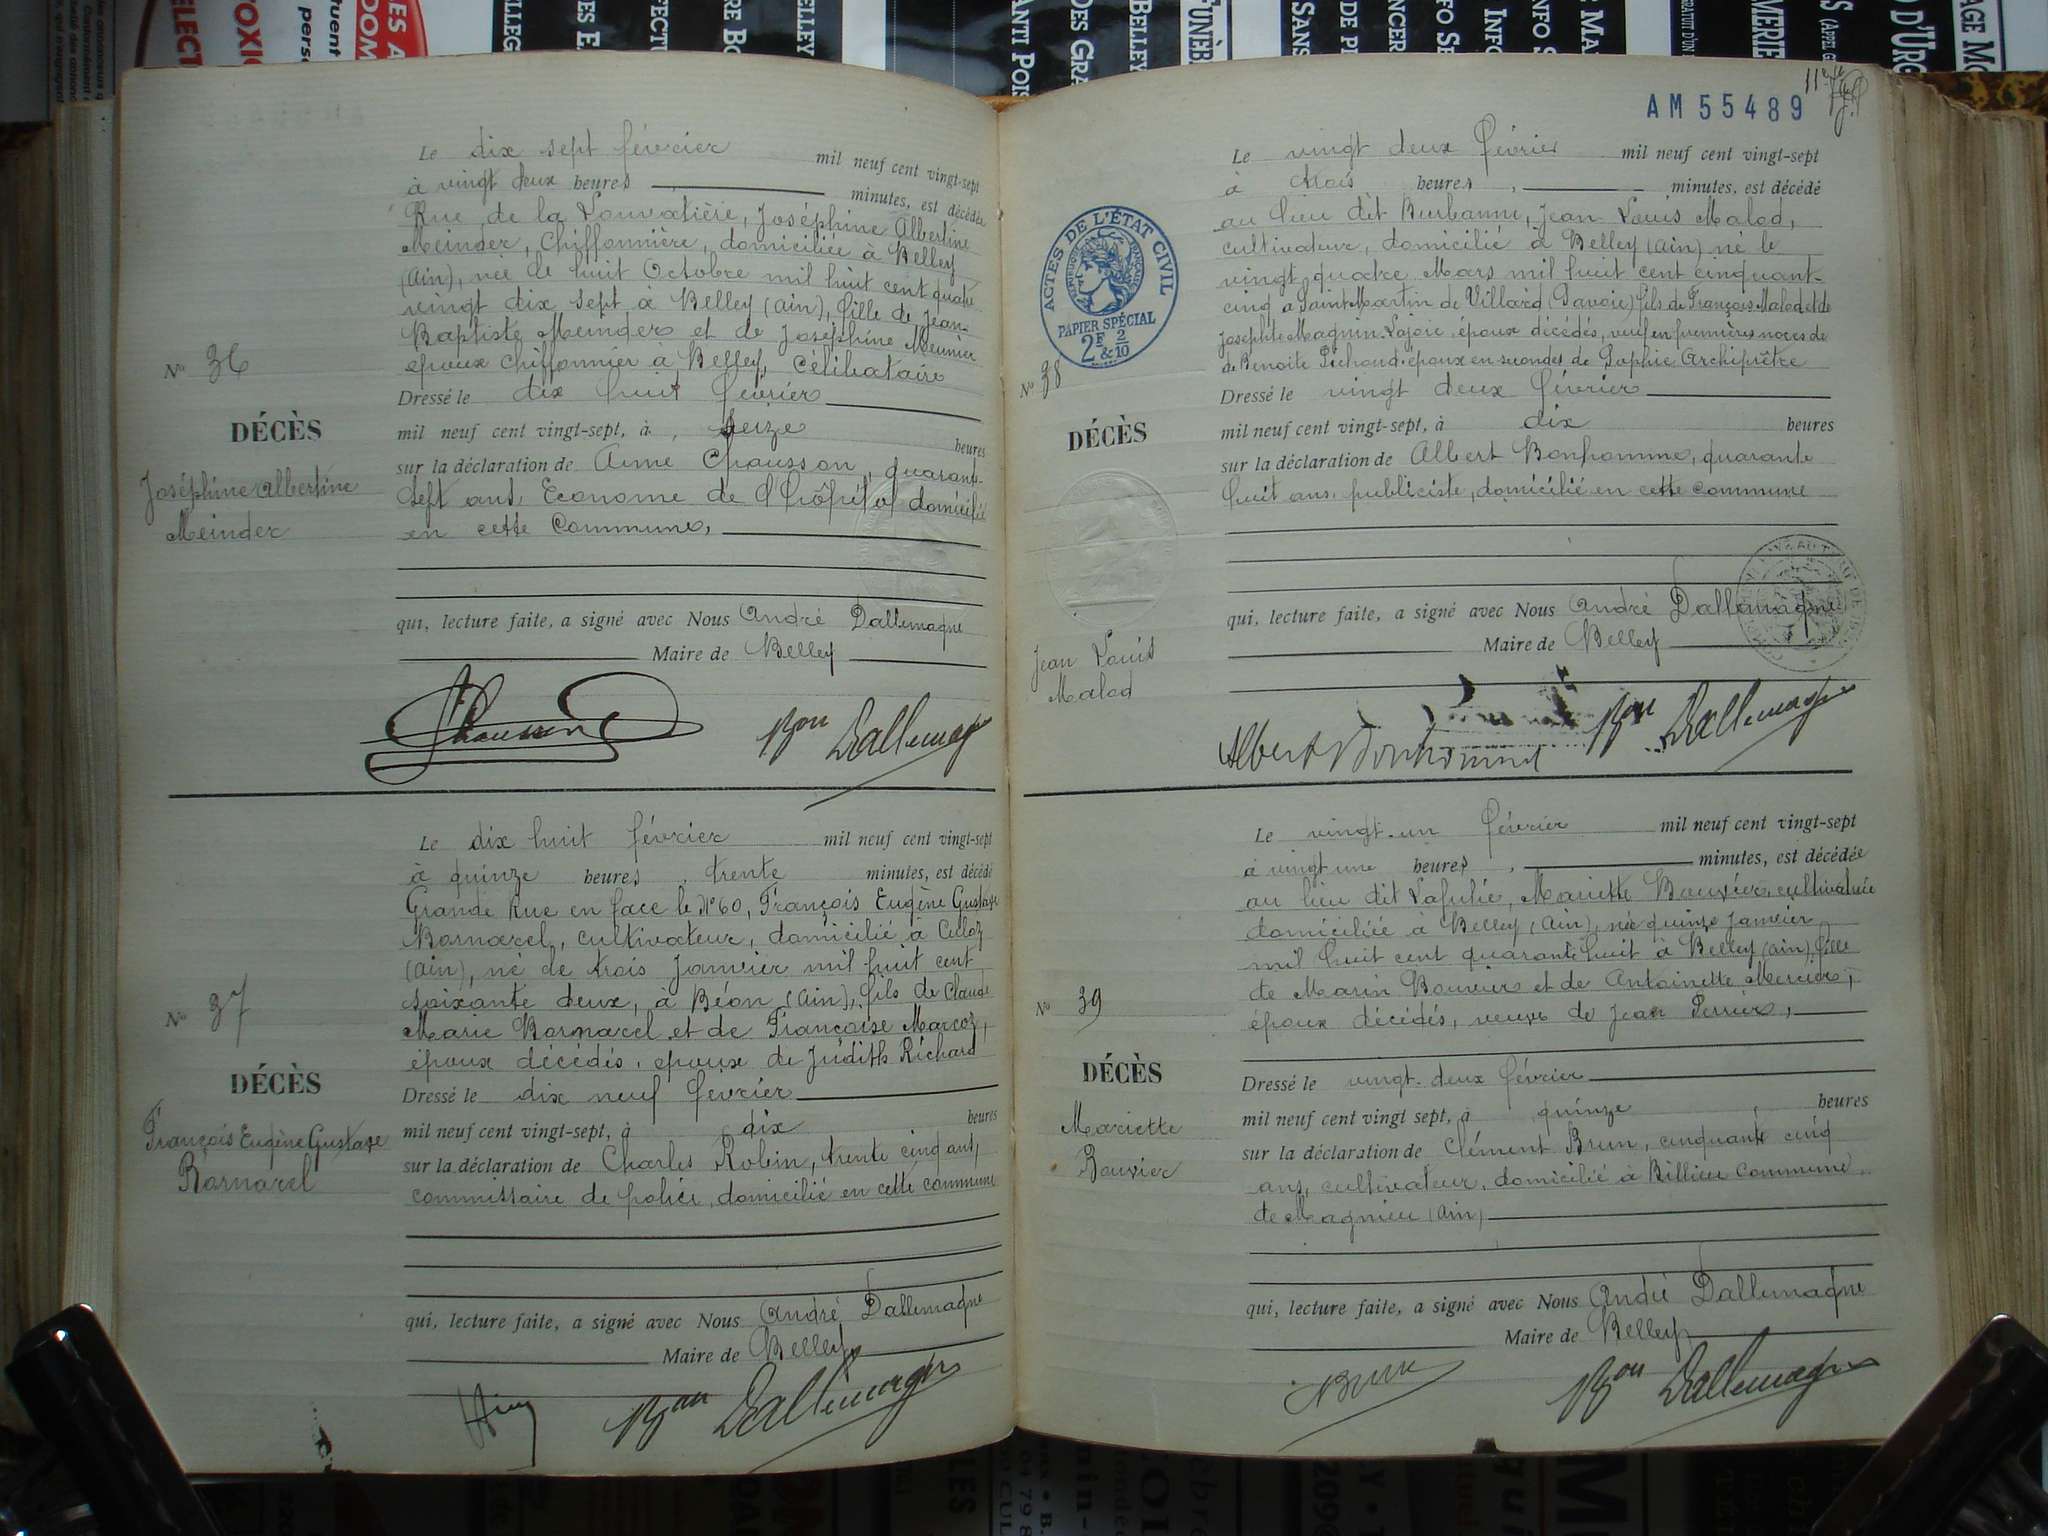 AM 55489
Le dix sept février mil neuf cent vingt-sept
à vingt deux heures minutes, est décédée
Rue de la Louvatière, Joséphine Albertine
Meinder, Chiffonnière, domiciliée à Belley
(Ain), née le huit Octobre mil huit cent quatre
vingt dix sept à Belley (Ain), fille de Jean-
Baptiste Meinder et de Joséphine Meunier
époux chiffonnier à Belley, Célibataire
Nº 36
DÉCÈS
Joséphine Albertine
Meinder
Dressé le dix huit février
mil neuf cent vingt-sept, à seize heures
sur la déclaration de Aimé Chausson, quarante-
sept ans, Econome de l'hôpital domicilié
en cette Commune,
qui, lecture faite, a signé avec Nous André Dallemagne
Maire de Belley
Chausson Bon Dallemagne
Le dix huit février mil neuf cent vingt-sept
à quinze heures, trente minutes, est décédé
Grande Rue en face le Nº 60, François Eugène Gustave
Bornarel, cultivateur, domicilié à
(Ain), né le trois Janvier mil huit cent
soixante deux, à Béon (Ain), fils de Claude
Marie Bornarel et de Françoise Marcoz,
époux décédés, époux de Judith Richard
Nº 37
DÉCÈS
François Eugène Gustave
Bornarel
Dressé le dix neuf février
mil neuf cent vingt-sept, à dix heures
sur la déclaration de Charles Robin, trente cinq ans,
commissaire de police, domicilié en cette commune
qui, lecture faite, a signé avec Nous André Dallemagne
Maire de Belley
Bon Dallemagne
Le vingt deux février mil neuf cent vingt-sept
à trois heures, minutes, est décédé
au lieu dit Burbanne, Jean Louis Malod,
cultivateur, domicilié à Belley (Ain) né le
vingt quatre Mars mil huit cent cinquante-
cinq à Saint Martin de Villard (Savoie) fils de François Malod et de
Josephte Magnin-Lajoie, époux décédés, veuf en premières noces de
de Benoite Pichoud, époux en secondes de Sophie Archiprêtre
ACTES DE L'ÉTAT CIVIL
RÉPUBLIQUE FRANÇAISE
PAPIER SPÉCIAL
2F & 2/10
Nº 38
DÉCÈS
Jean Louis
Malod
Dressé le vingt deux février
mil neuf cent vingt-sept, à dix heures
sur la déclaration de Albert Bonhomme, quarante
huit ans, publiciste, domicilié en cette commune
qui, lecture faite, a signé avec Nous André Dallemagne
Maire de Belley
Albert Bonhomme Bon Dallemagne
Le vingt-un février mil neuf cent vingt-sept
à vingt une heures, minutes, est décédée
au lieu dit Lafulie, Mariette Bouvier, cultivatrice
domiciliée à Belley (Ain), née quinze Janvier
mil huit cent quarante huit à Belley (Ain), fille
de Marin Bouvier et de Antoinette Mercier,
époux décédés, veuve de Jean Perrier,
Nº 39
DÉCÈS
Mariette
Bouvier
Dressé le vingt-deux février
mil neuf cent vingt sept, à quinze, heures
sur la déclaration de Clément Brun, cinquante cinq
ans, cultivateur, domicilié à Billieu Commune
de Magnieu (Ain)
qui, lecture faite, a signé avec Nous André Dallemagne
Maire de Belley
Brun Bon Dallemagne